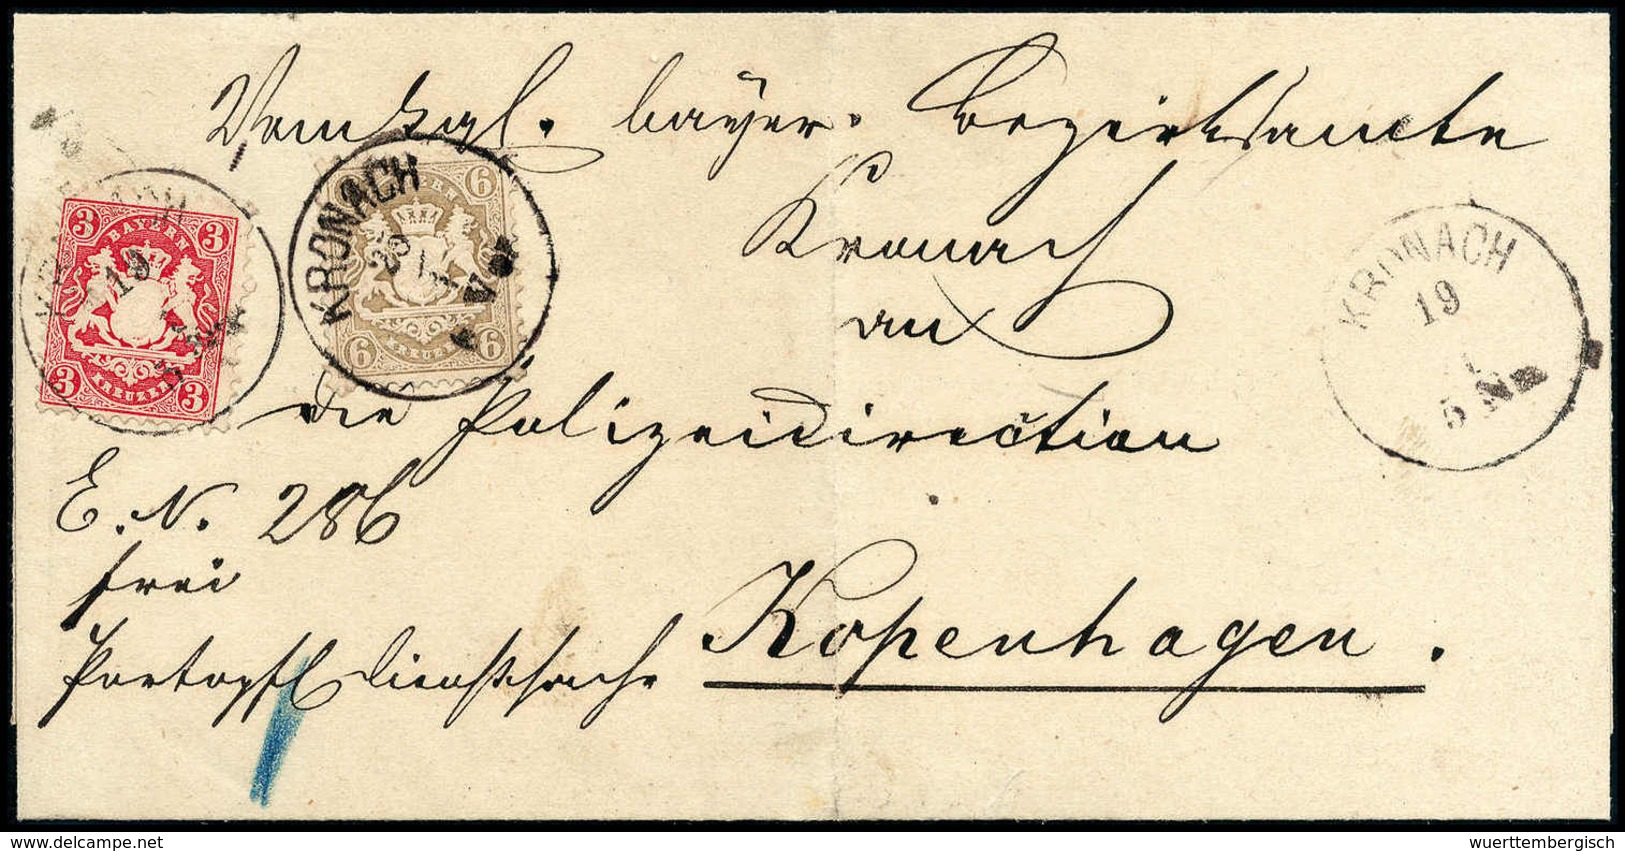 Vom kgl. bayer. Bezirksamte
Kronach
an
die Polizeidirection
Kopenhagen.
E. N. 286
frei
Portopfl. Dienstsache
3 BAYERN 3
3 KREUZER 3
KRONACH
19
BAYERN 6
6 KREUZER 6
KRONACH
25
KRONACH
19
5 Nm
www.delcampe.net
wuerttembergisch